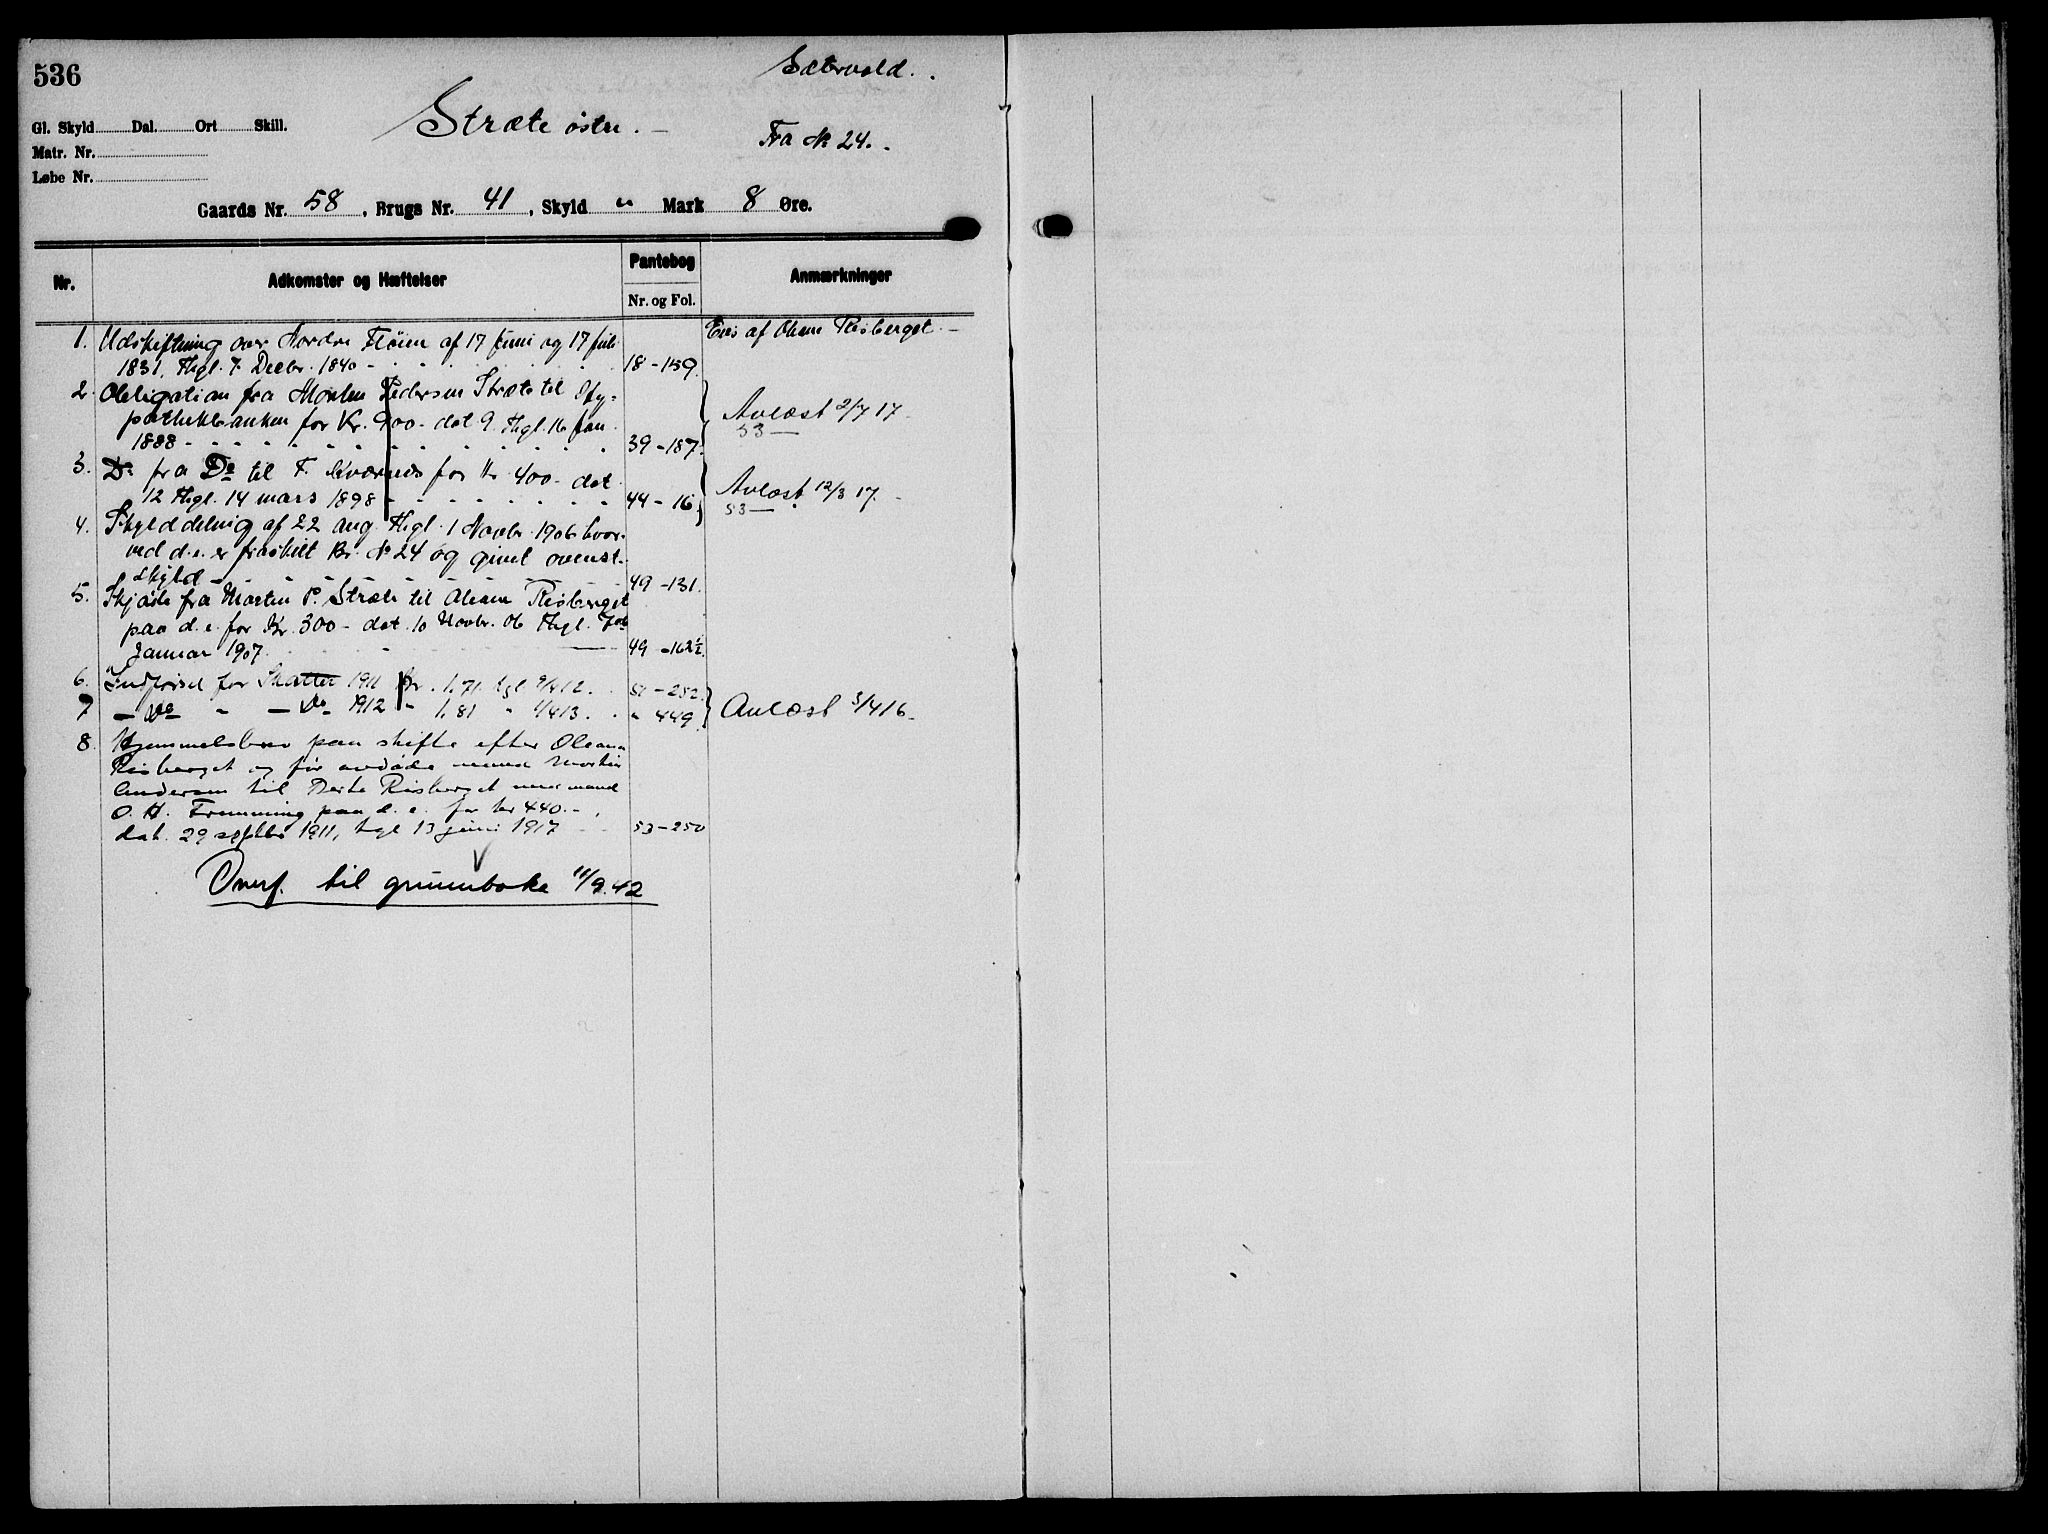 536
Sætervold.
Stræte østre.
Fra № 24.
Gl. Skyld Dal. Ort Skill.
Matr. Nr.
Løbe Nr.
Gaards Nr. 58, Brugs Nr. 41, Skyld " Mark 8 Øre.
Nr. Adkomster og Hæftelser Pantebog Anmærkninger
Nr. og Fol.
Eies af Oleane Risberget.
1. Udskiftning over Nordre Fløien af 17 juni og 17 juli
1831, Thgl. 7 Decbr. 1840 18-159.
2. Obligation fra Morten Pedersen Stræte til Hy-
pothekbanken for Kr. 900 - dat 9. Thgl. 16 jan.
1888 39-187. Avlæst 2/7 17
53
3. Do fra Do til F. Kværnes for Kr 400 - dat
12 Thgl. 14 mars 1898 44-16 Avlæst 12/3 17.
53
4. Skylddeling af 22 aug. Thgl. 1 Novbr. 1906 hvor-
ved d.e. er fraskilt Br. № 24 og givet ovenst.
Skyld 49-131.
5. Skjøde fra Morten P. Stræte til Oleane Risberget
paa d.e. for Kr. 300 - dat. 10 Novbr. 06 Thgl. 7de
Januar 1907. 49-162½.
6. Indførsel for Skatter 1911 Kr. 1,71. tgl 9/4 12. 51-252.
7 - Do - - Do 1912 " 1,81 " 1/4 13. " 449. Avlæst 3/4 16
8. Hjemmelsbrev paa skifte efter Oleana
Risberget og før avdøde mand Martin
Andersen til Berte Risberget med mand
O. H. Tremming paa d.e. for kr 440.-,
dat. 29 septbr 1911, tgl 13 juni 1917 53-250
Overf. til grunnboka 11/9.42